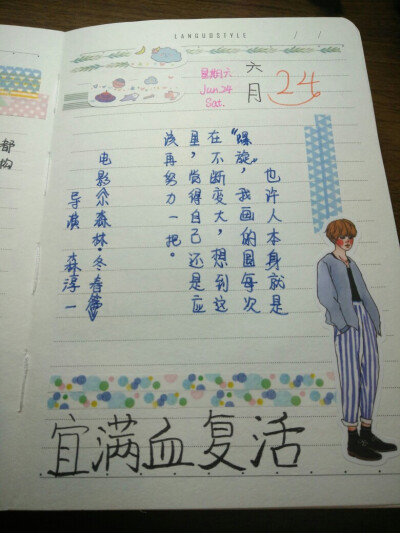 LANGUOSTYLE / /
星期六
Jun.24
Sat.
六月
24
也许人本身就是
“螺旋”，我画的圆每次
在不断变大，想到这
里，觉得自己还是应
该再努力一把。
电影《小森林·冬春》
导演 森淳一
宜满血复活
都
构